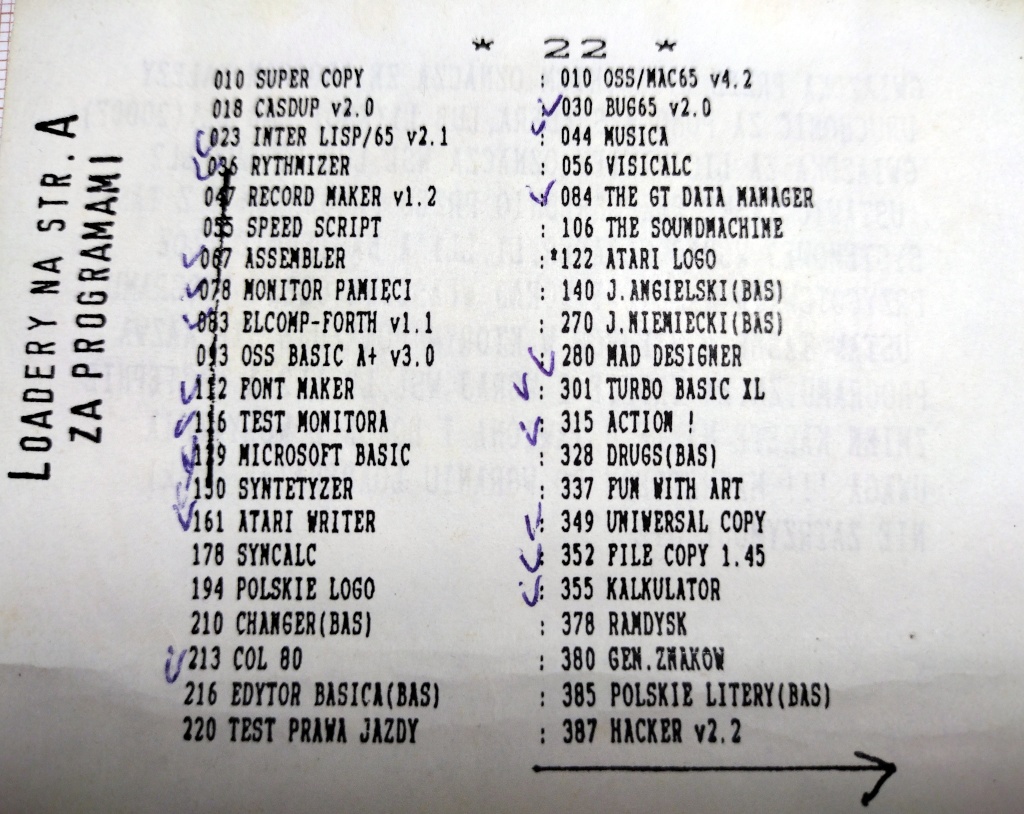 * 22 *
010 SUPER COPY
018 CASDUP v2.0
023 INTER LISP/65 v2.1
036 RYTHMIZER
047 RECORD MAKER v1.2
055 SPEED SCRIPT
067 ASSEMBLER
078 MONITOR PAMIĘCI
083 ELCOMP-FORTH v1.1
093 OSS BASIC A+ v3.0
112 FONT MAKER
116 TEST MONITORA
119 MICROSOFT BASIC
150 SYNTETYZER
161 ATARI WRITER
178 SYNCALC
194 POLSKIE LOGO
210 CHANGER(BAS)
213 COL 80
216 EDYTOR BASICA(BAS)
220 TEST PRAWA JAZDY
: 010 OSS/MAC65 v4.2
: 030 BUG65 v2.0
: 044 MUSICA
: 056 VISICALC
: 084 THE GT DATA MANAGER
: 106 THE SOUNDMACHINE
:*122 ATARI LOGO
: 140 J.ANGIELSKI(BAS)
: 270 J.NIEMIECKI(BAS)
: 280 MAD DESIGNER
: 301 TURBO BASIC XL
: 315 ACTION !
: 328 DRUGS(BAS)
: 337 FUN WITH ART
: 349 UNIWERSAL COPY
: 352 FILE COPY 1.45
: 355 KALKULATOR
: 378 RAMDYSK
: 380 GEN.ZNAKÓW
: 385 POLSKIE LITERY(BAS)
: 387 HACKER v2.2
LOADERY NA STR. A
ZA PROGRAMAMI